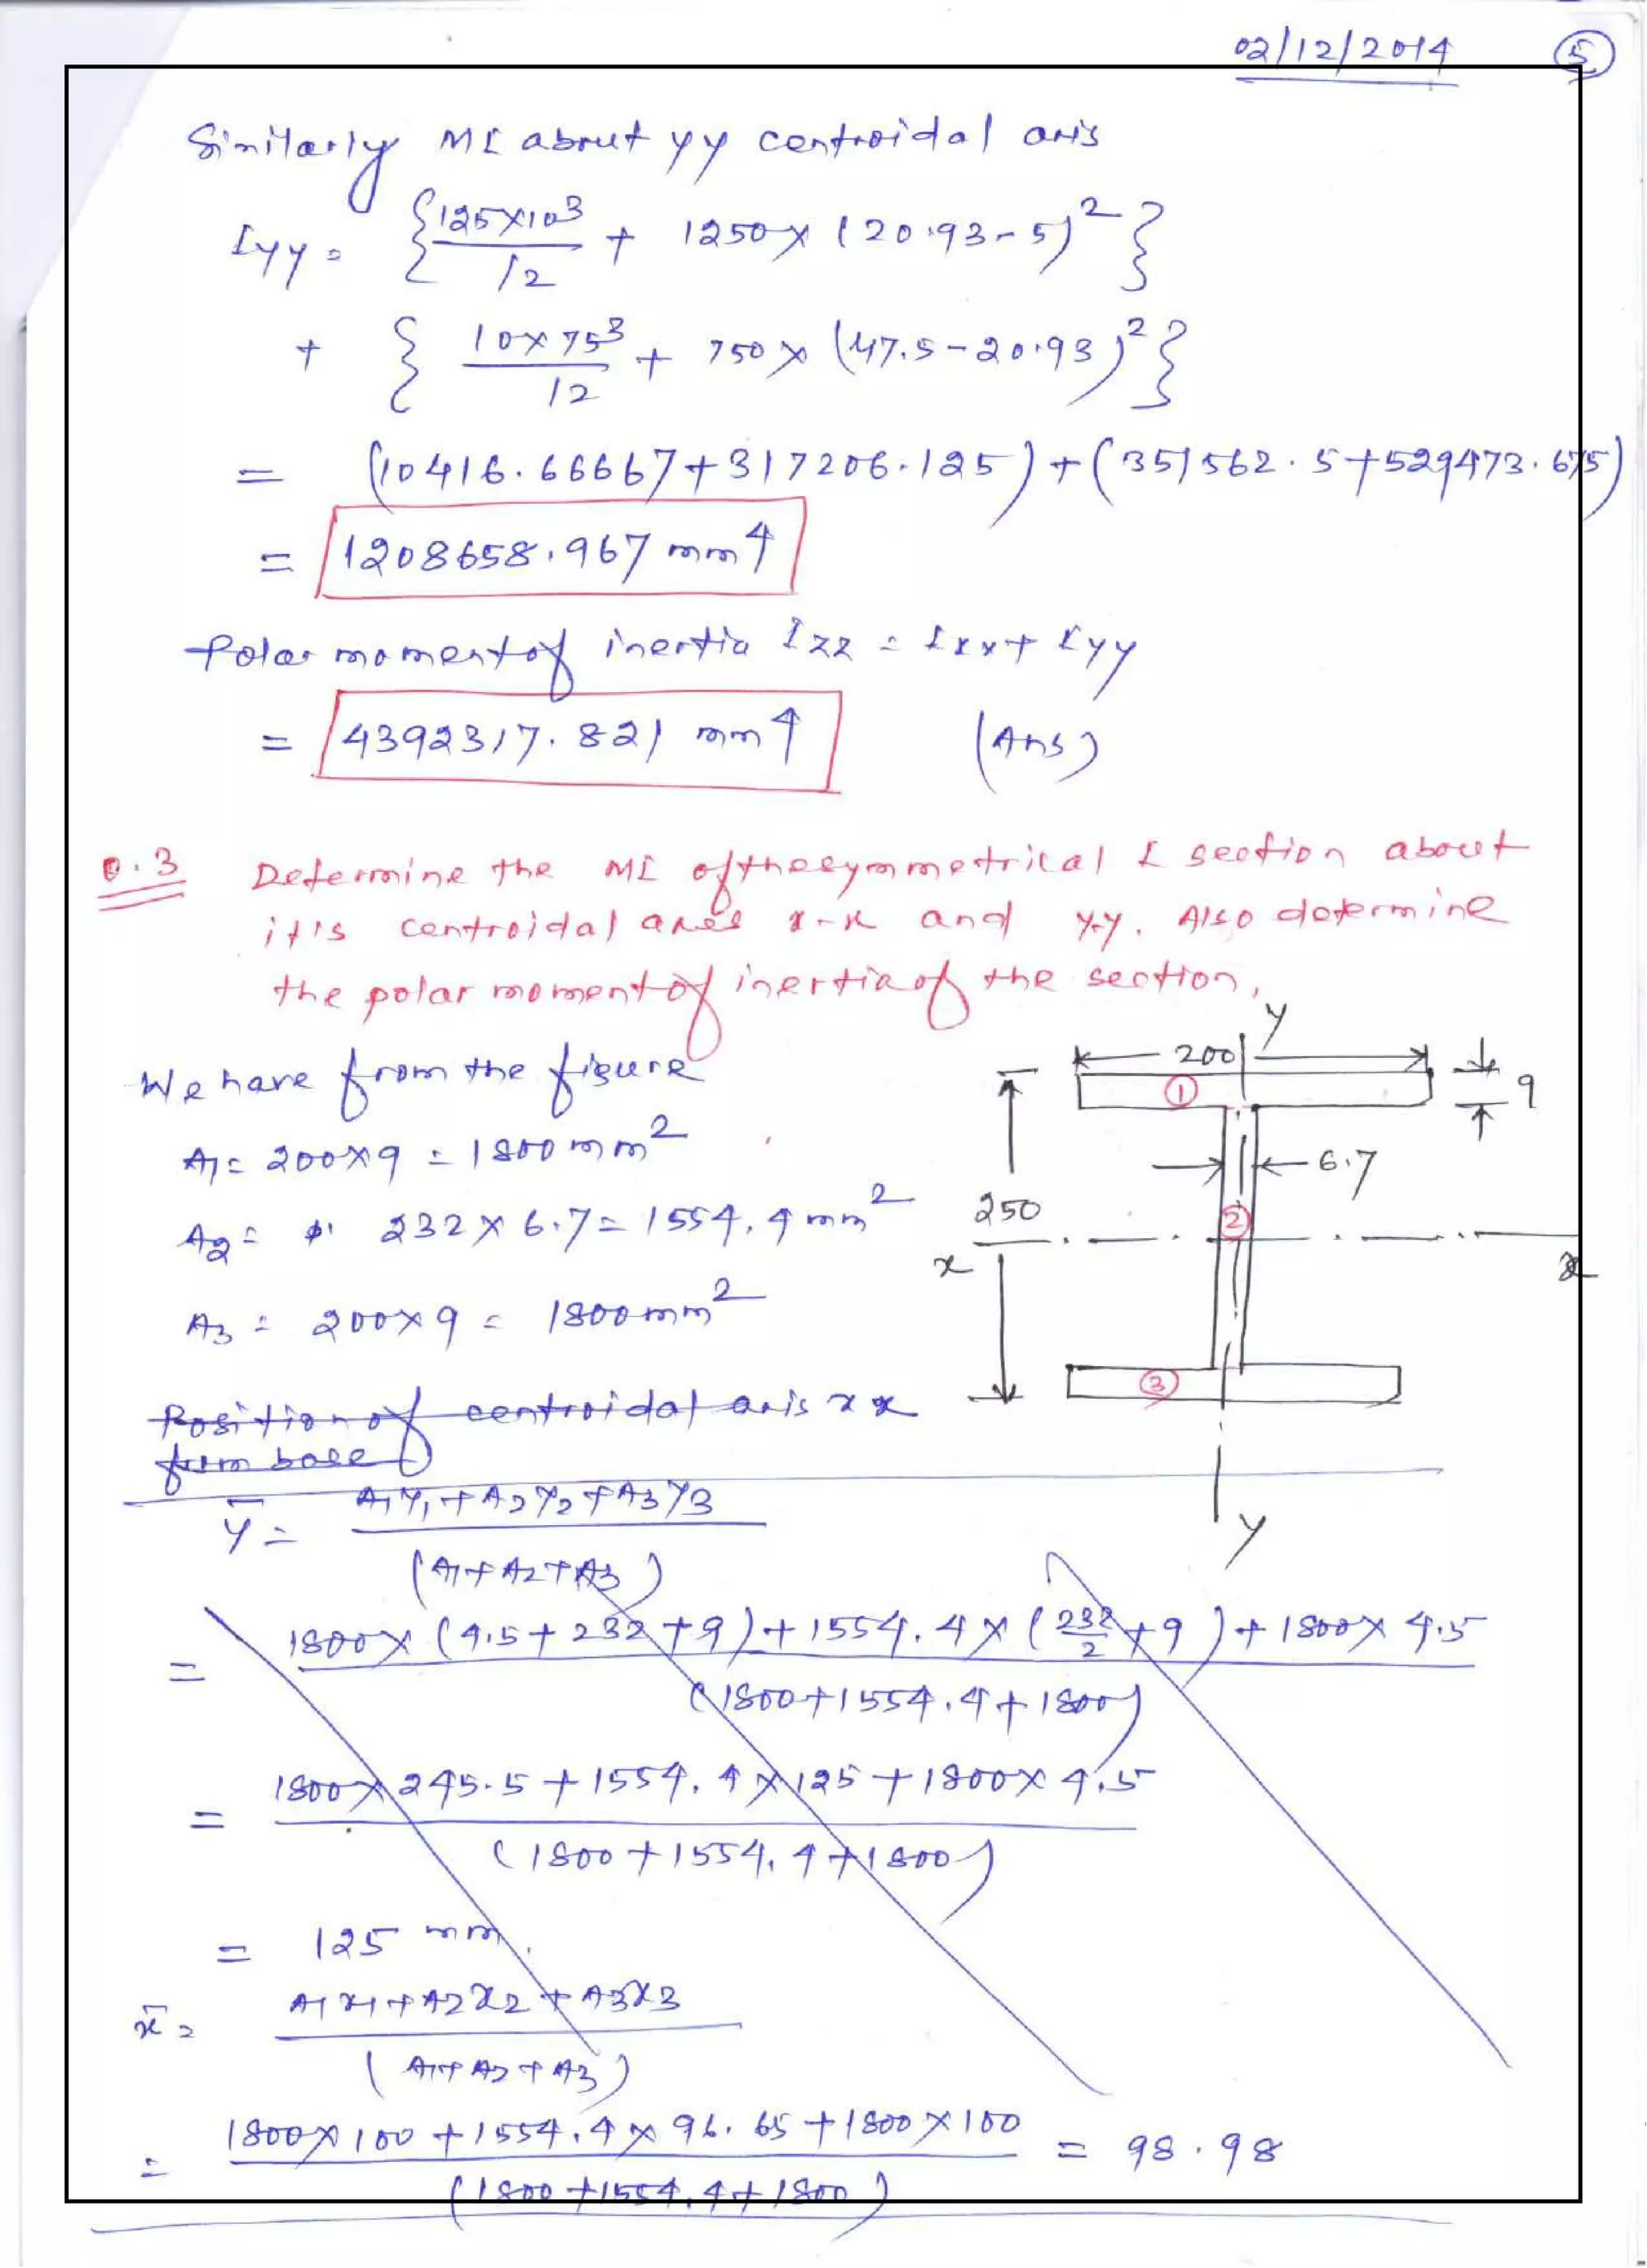 02/12/2014 5
Similarly MI about yy centroidal axis
Iyy = {125×10³/12 + 1250×(20.93-5)²}
+ {10×75³/12 + 750×(47.5-20.93)²}
= (10416.66667+317206.125)+(351562.5+529473.675)
= 1208658.967 mm⁴
Polar moment of inertia Izz = Ixx+Iyy
= 4392317.821 mm⁴ (Ans)
Q.3 Determine the MI of the symmetrical I section about
it's centroidal axes x-x and y-y. Also determine
the polar moment of inertia of the section,
We have from the figure
A1 = 200×9 = 1800 mm²
A2 = 232×6.7 = 1554.4 mm²
A3 = 200×9 = 1800 mm²
Y
200
9
1
6.7
250
2
x x
3
Y
Position of centroidal axis xx
from base
ȳ = A1Y1+A2Y2+A3Y3/(A1+A2+A3)
= 1800×(4.5+232+9)+1554.4×(232/2+9)+1800×4.5/(1800+1554.4+1800)
= 1800×245.5+1554.4×125+1800×4.5/(1800+1554.4+1800)
= 125 mm.
x̄ = A1x1+A2x2+A3x3/(A1+A2+A3)
= 1800×100+1554.4×96.65+1800×100/(1800+1554.4+1800) = 98.98